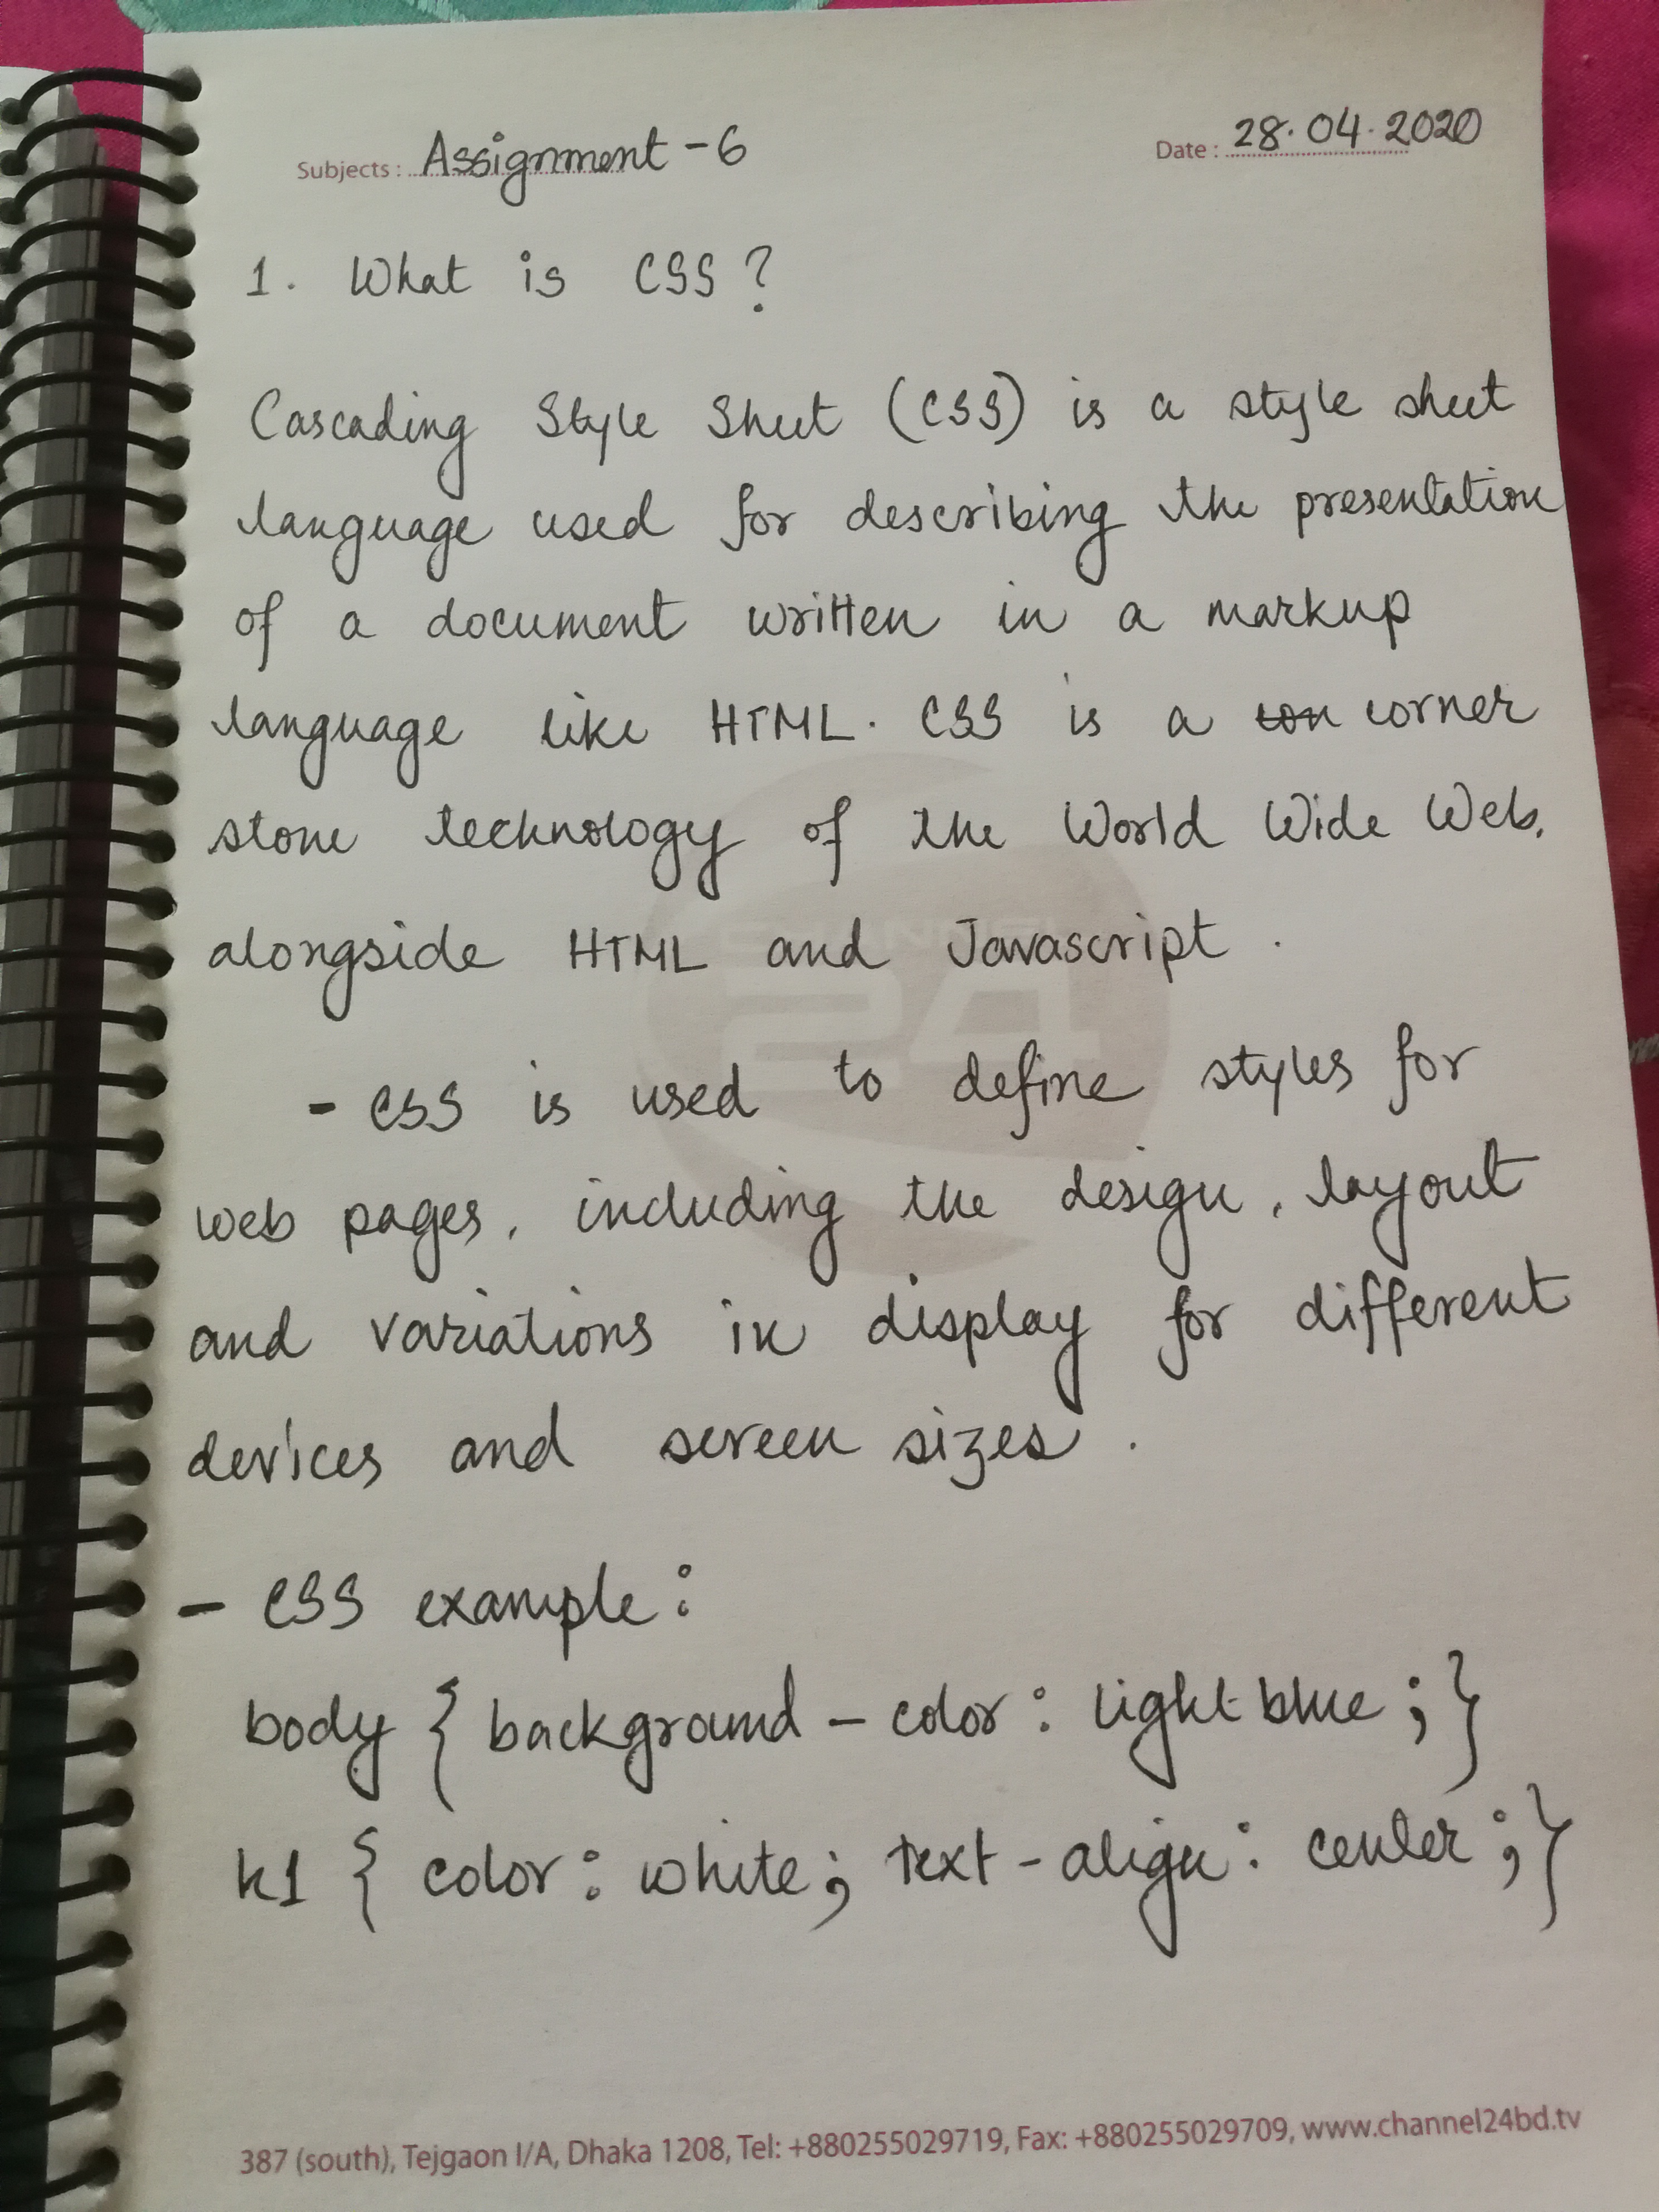 Subjects: Assignment - 6
Date: 28.04.2020
1. What is CSS?
Cascading Style Sheet (CSS) is a style sheet
language used for describing the presentation
of a document written in a markup
language like HTML. CSS is a con corner
stone technology of the World Wide Web,
alongside HTML and Javascript.
- CSS is used to define styles for
web pages, including the design, layout
and variations in display for different
devices and screen sizes.
- CSS example:
body { background-color: lightblue; }
h1 { color: white; text-align: center; }
CHANNEL
24
387 (south), Tejgaon I/A, Dhaka 1208, Tel: +880255029719, Fax: +880255029709, www.channel24bd.tv